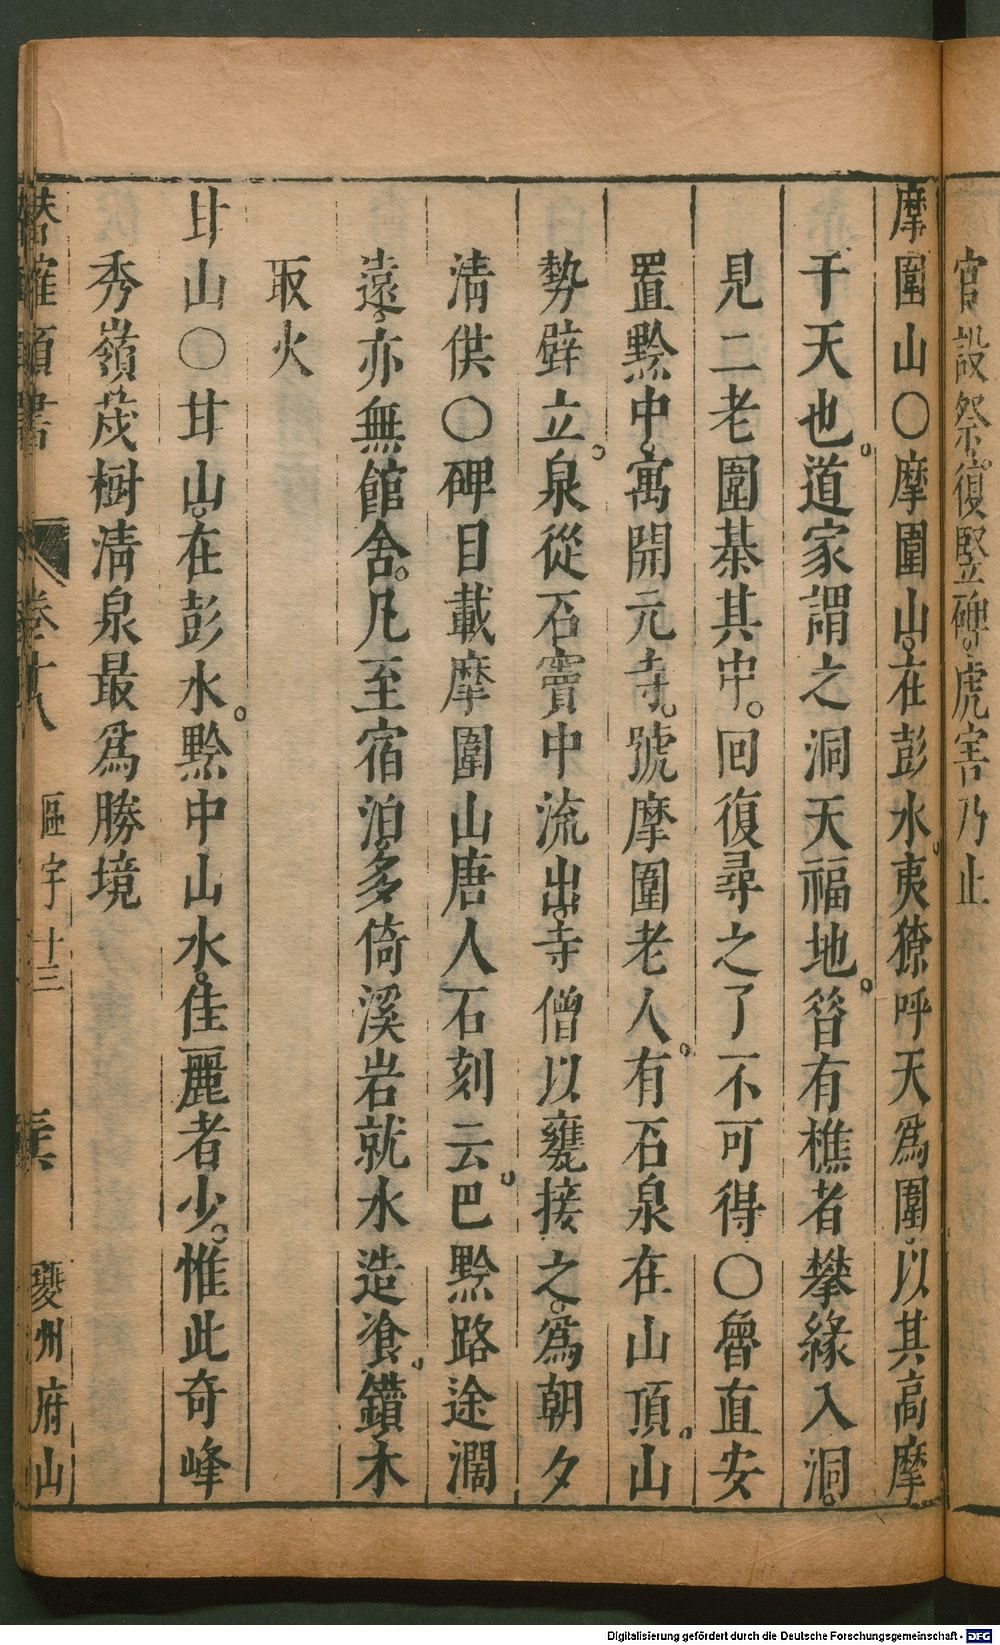 官設祭。復堅碑。虎害乃止
摩圍山○摩圍山。在彭水。夷獠呼天爲圍。以其高摩
干天也。道家謂之洞天福地。昝有樵者攀緣入洞。
見二老圍棊其中。回復尋之了不可得○魯直安
置黔中。寓開元寺。號摩圍老人。有石泉在山頂。山
勢壁立。泉從石竇中流出。寺僧以甕接之。爲朝夕
清供○碑目載摩圍山唐人石刻云。巴黔路途濶
遠。亦無館舍。凡至宿泊。多倚溪岩就水造飡。鑽木
取火
甘山○甘山。在彭水。黔中山水。佳麗者少。惟此奇峰
秀嶺茂樹清泉最爲勝境
潛確類書 卷十八 區宇十三 夔州府山
Digitalisierung gefördert durch die Deutsche Forschungsgemeinschaft - DFG